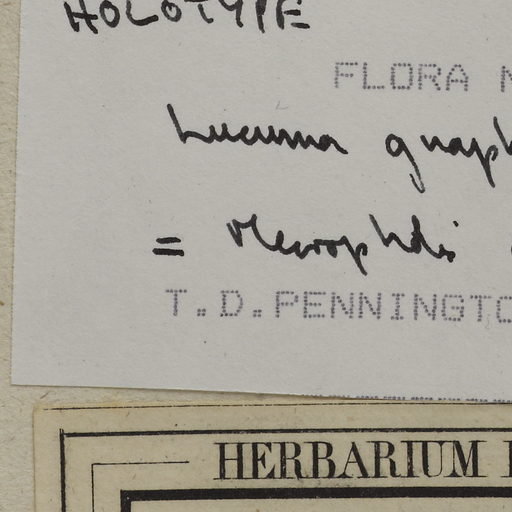 HOLOTYPE
FLORA N
Lucuma gnaph
=
T.D.PENNINGTO
HERBARIUM